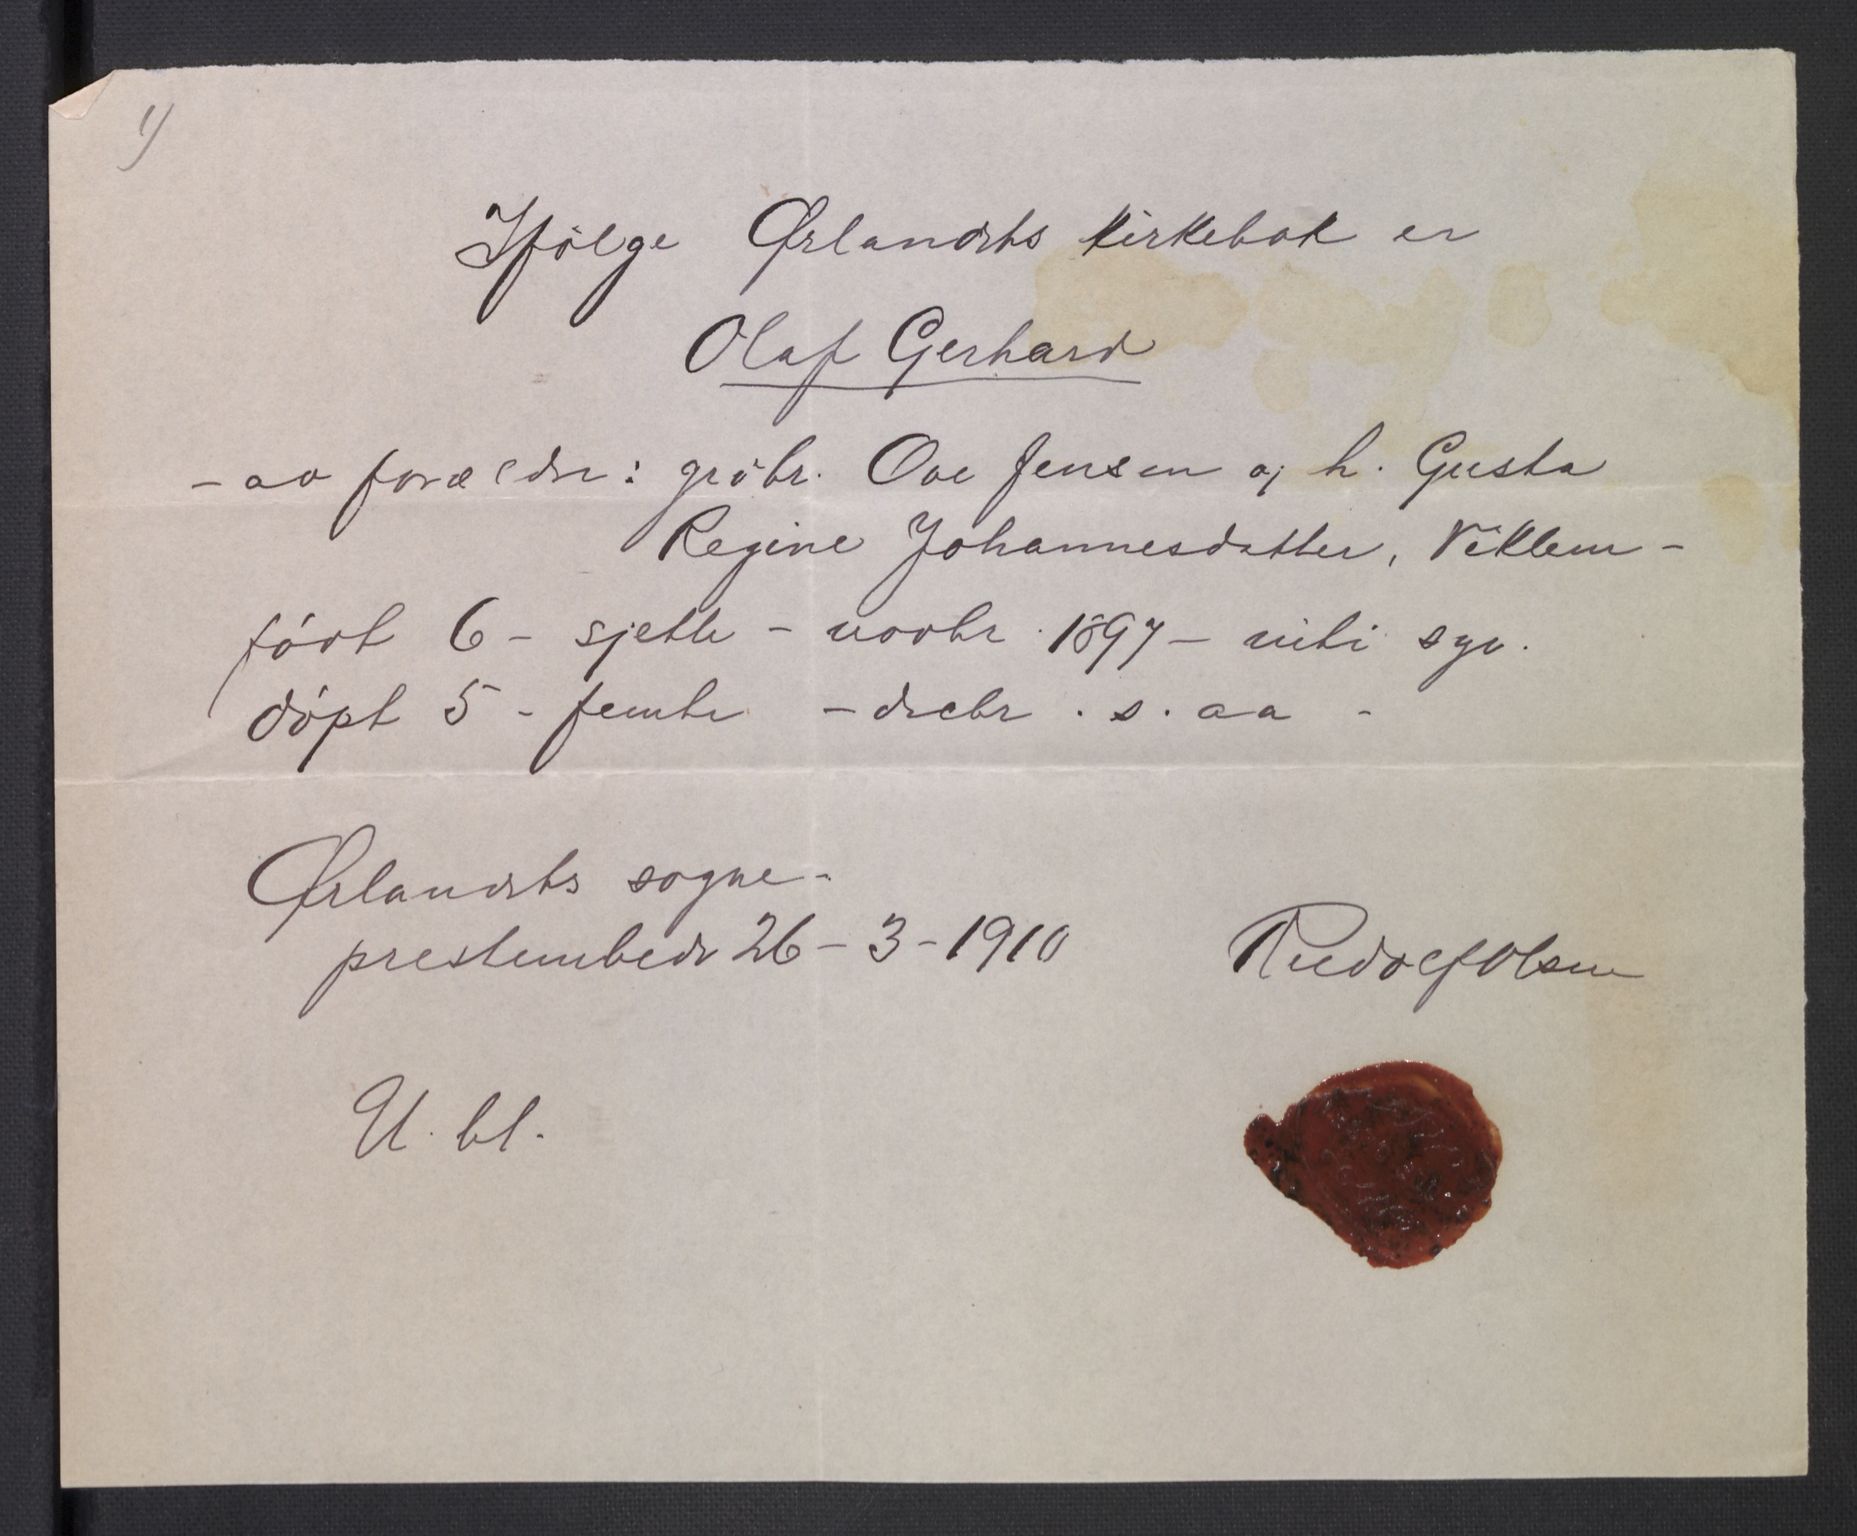 1)
Ifölge Ørlandets kirkebok er
Olaf Gerhard
- av forældre: grdbr. Ove Jensen og h. Gusta
Regine Johannesdatter, Viklem -
født 6 - sjette - novbr. 1897 - niti syv.
døpt 5 - femte - decbr. s. aa -
Ørlandets sogne-
prestembede 26 - 3 - 1910 Rudolf Olsen
U. bl.